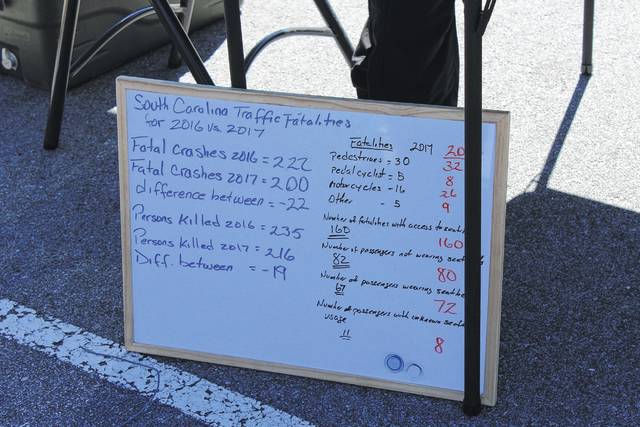 South Carolina Traffic Fatalities
for 2016 vs. 2017
Fatal crashes 2016 = 222
Fatal Crashes 2017 = 200
difference between = -22
Persons Killed 2016 = 235
Persons Killed 2017 = 216
Diff. between = -19
Fatalities 2017 20
Pedestrians = 30 32
Pedalcyclist = 5 8
Motorcycles - 16 26
Other - 5 9
Number of fatalities with access to
160 160
Number of passengers not wearing
82 80
Number of passengers wearing
67 72
Number of passengers with unknown
usage
11 8